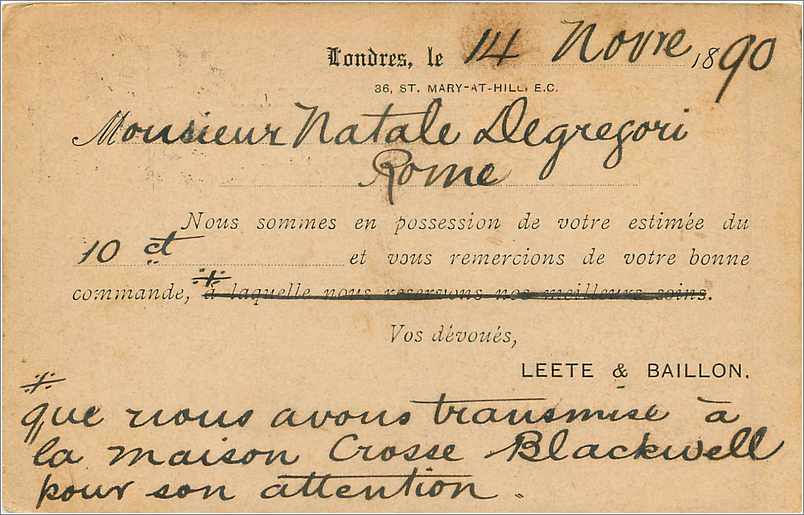 Londres, le 14 Novre 1890
36, ST. MARY-AT-HILL, E.C.
Monsieur Natale Degregori
Rome
Nous sommes en possession de votre estimée du
10 ct et vous remercions de votre bonne
commande, à laquelle nous reservons nos meilleurs soins.
Vos dévoués,
LEETE & BAILLON.
que nous avons transmise à
la maison Crosse Blackwell
pour son attention.